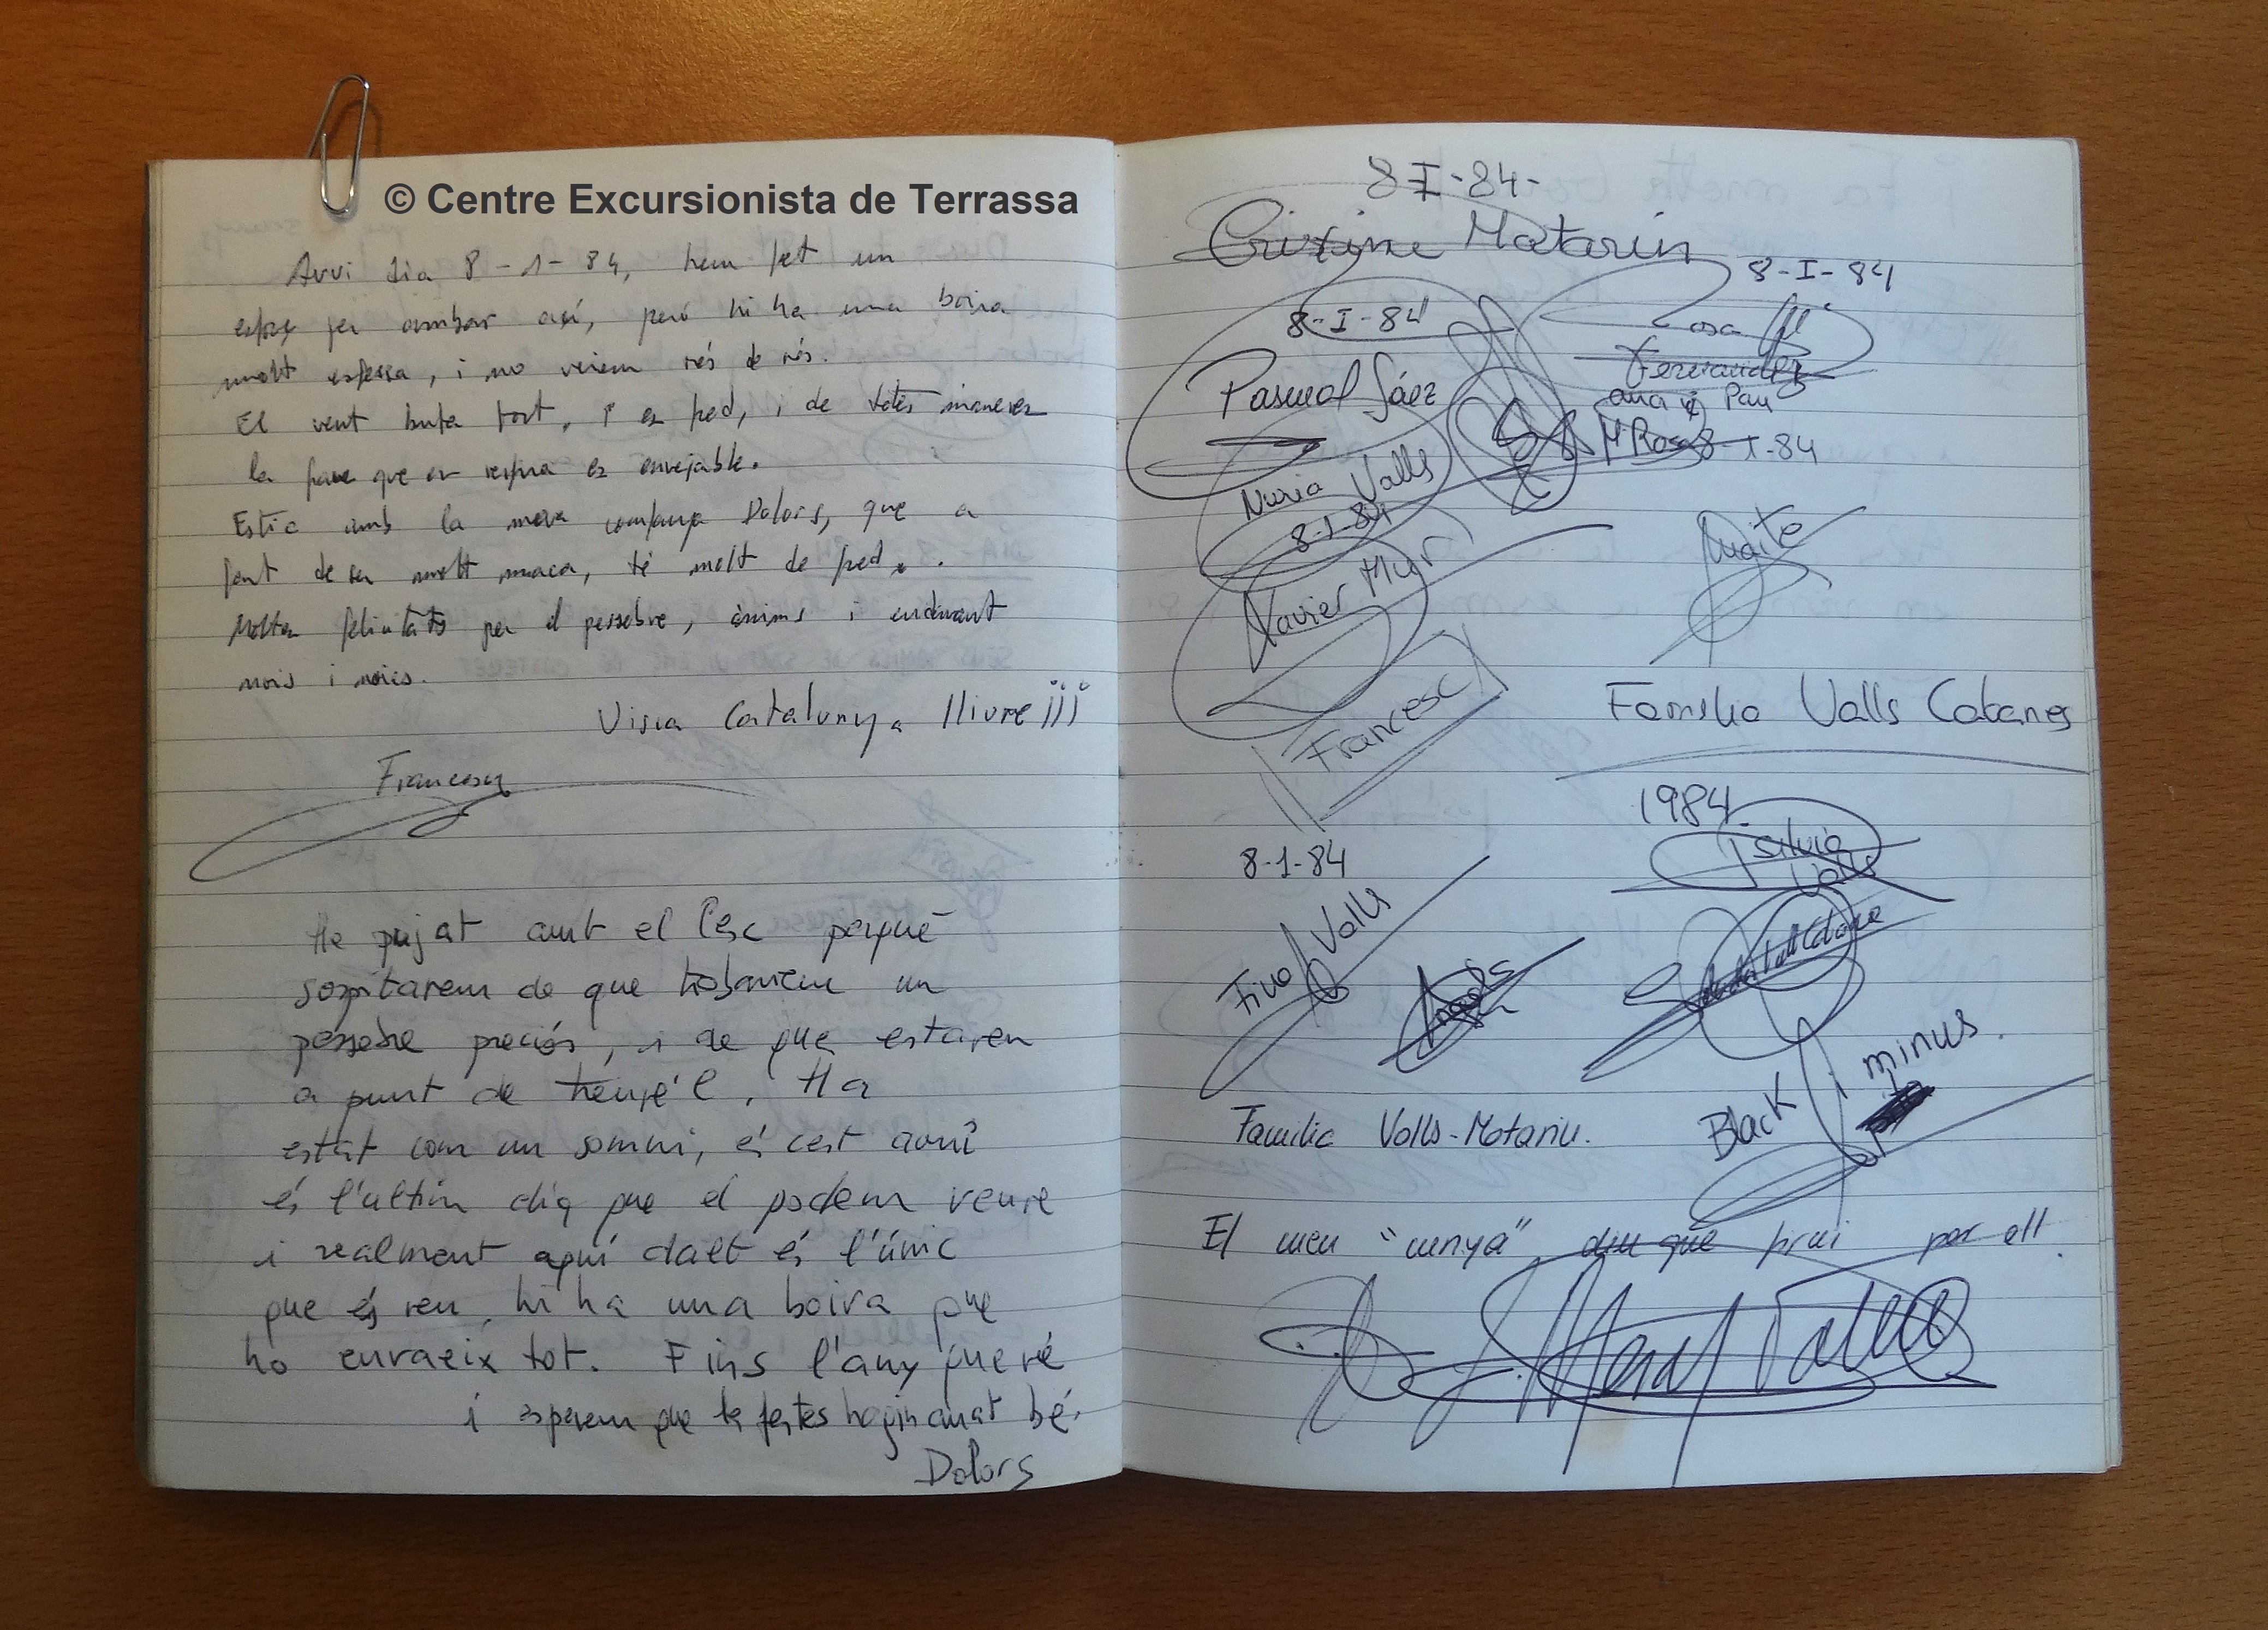 © Centre Excursionista de Terrassa
Avui dia 8-1-84, hem fet un
esforç per arribar així, però hi ha una boira
molt espessa, i no veiem rés de rés.
El vent bufa fort, i es fred, i de totes maneres
la pau que es respira es envejable.
Estic amb la meva companya Dolors, que a
part de ser molt maca, té molt de fred.
Moltes felicitats per el pessebre, ànims i endavant
nois i noies.
Visca Catalunya lliure ¡¡¡
Francesc
He pujat amb el Cesc perquè
sospitarem de que trobariem un
pessebre preciós, i de que estarem
a punt de treure'l. Ha
estat com un somni, és cert avui
és l'ultim dia que el podem veure
i realment aquí dalt és l'únic
que és veu, hi ha una boira que
ho envaeix tot. Fins l'any que ve
i esperem que les festes hagin anat bé.
Dolors
8-I-84-
Matarin
8-I-84
8-I-84
Rosa
Fernandez
Pascual Sáez
ana i Pau
Mª Rosa 8-1-84
Nuria Valls
8-1-84
Maite
Xavier Mur
Francesc
Familia Valls Cabanes
1984
Silvia
Valls
8-1-84
Fina Valls
Angels
Black minus.
Familia Valls-Matarin.
El meu "cunyà", diu que prai per ell.